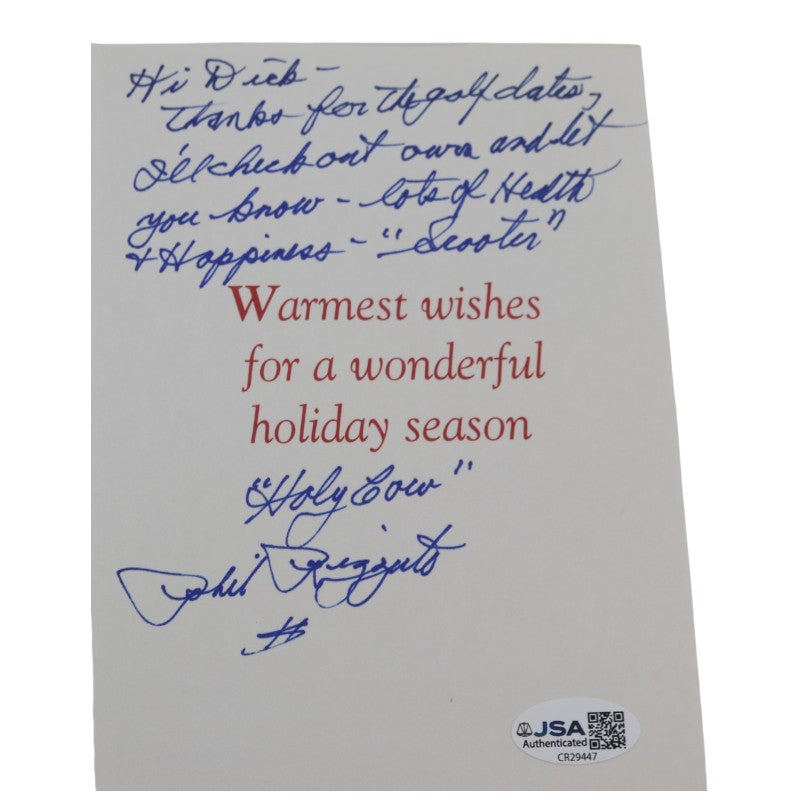 Hi Dick -
Thanks for the golf dates,
I'll check out ours and let
you know - lots of Health
+ Happiness - "Scooter"
Warmest wishes
for a wonderful
holiday season
"Holy Cow"
Phil Rizzuto
JSA
Authenticated
CR29447